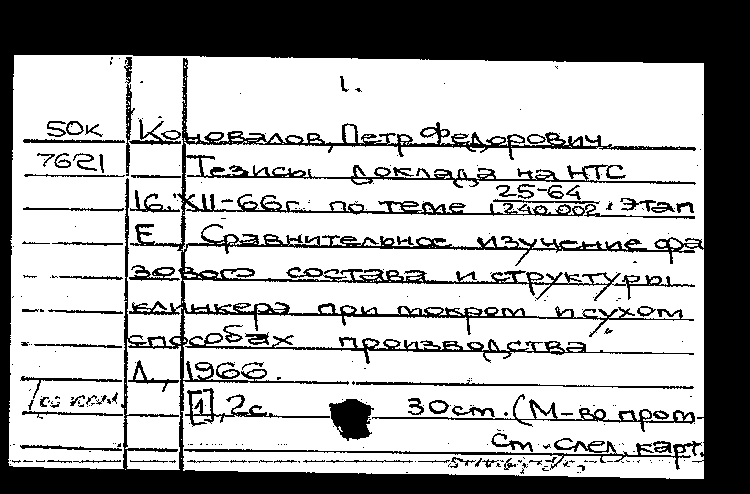 1.
50к Коновалов, Петр Федорович.
7621 Тезисы доклада на НТС
16.XII-66г. по теме 25-64/1.240.002, этап
Е, Сравнительное изучение фа
зового состава и структуры
клинкерэ при мокром и сухом
способах производства.
Л., 1966.
[1], 2с. 30см. (М-во пром-
см. след. карт.